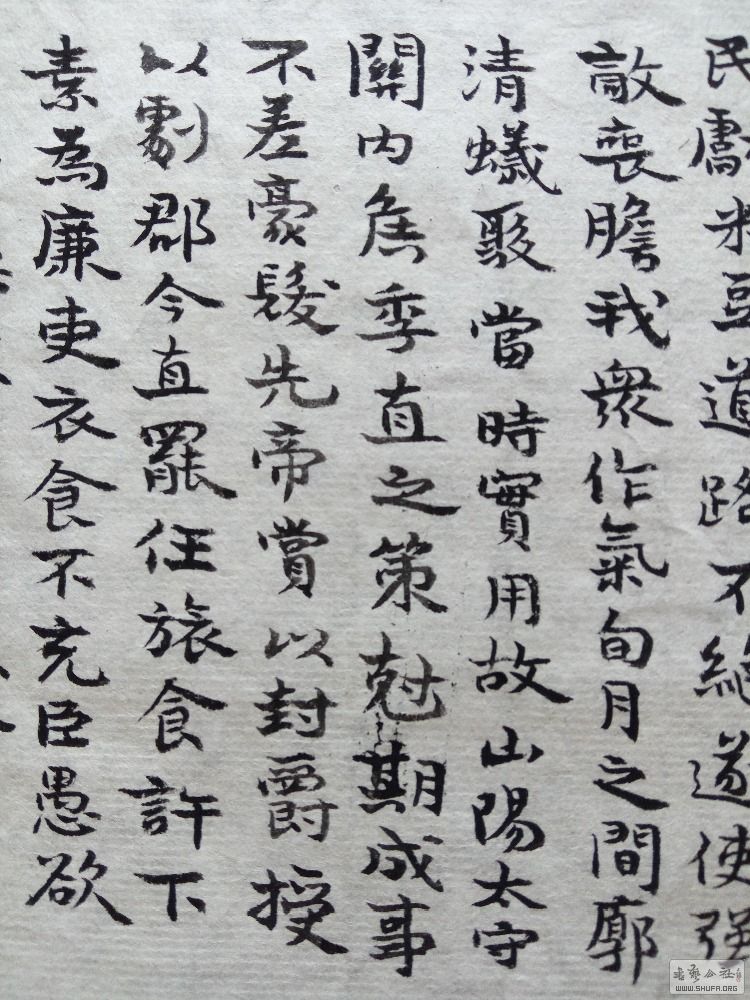 民獻米豆道路不絕遂使強
敵喪膽我眾作氣旬月之間廓
清蟻聚當時實用故山陽太守
關內侯季直之策尅期成事
不差豪髮先帝賞以封爵授
以劇郡今直罷任旅食許下
素為廉吏衣食不充臣愚欲
WWW.SHUFA.ORG